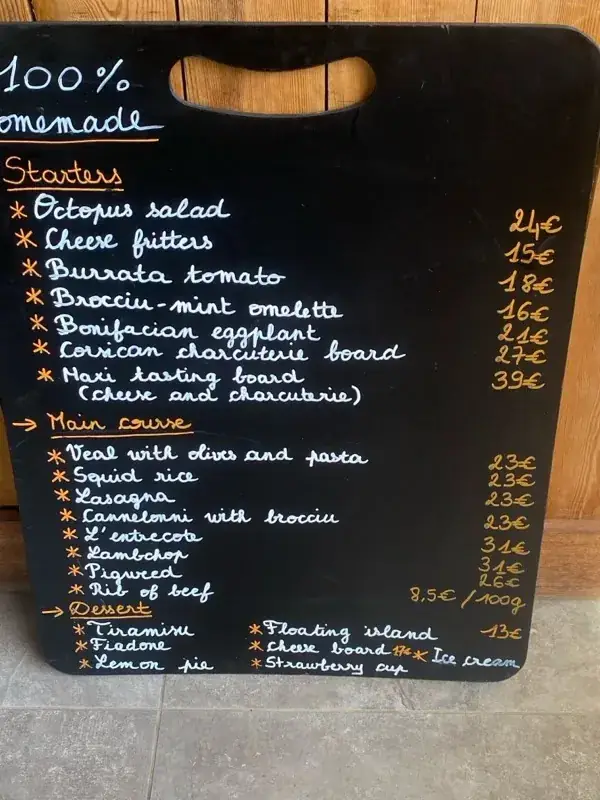 100%
omemade
Starters
* Octopus salad 24€
* Cheese fritters 15€
* Burrata tomato 18€
* Brocciu-mint omelette 16€
* Bonifacian eggplant 21€
* Corsican charcuterie board 27€
* Maxi tasting board 39€
(cheese and charcuterie)
→ Main course
* Veal with olives and pasta 23€
* Squid rice 23€
* Lasagna 23€
* Cannelonni with brocciu 23€
* L'entrecote 31€
* Lambchop 31€
* Pigweed 26€
* Rib of beef 8,5€ / 100g
→ Dessert
* Tiramisu * Floating island 13€
* Fiadone * cheese board 17€ * Ice cream
* Lemon pie * Strawberry cup